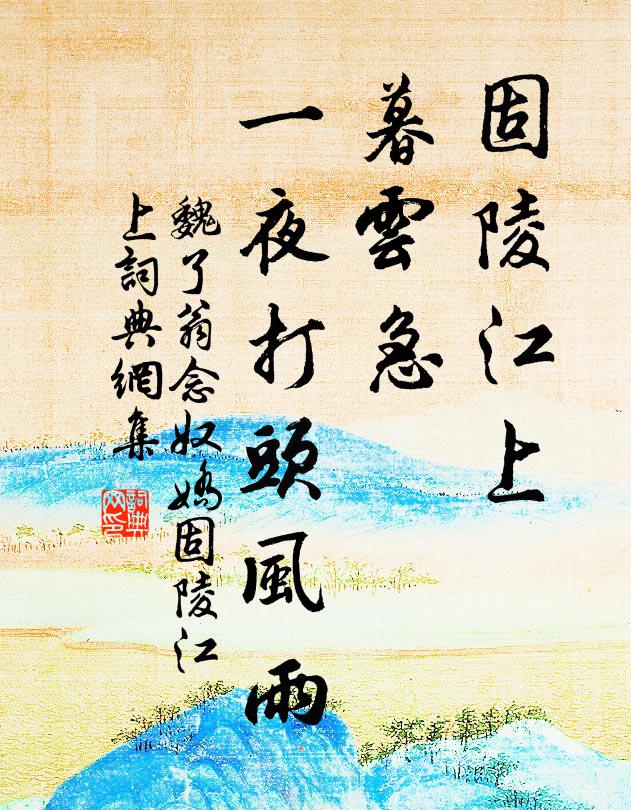 固陵江上
暮雲急
一夜打頭風雨
魏了翁念奴嬌固陵江
上詞典網集
詞典
網印